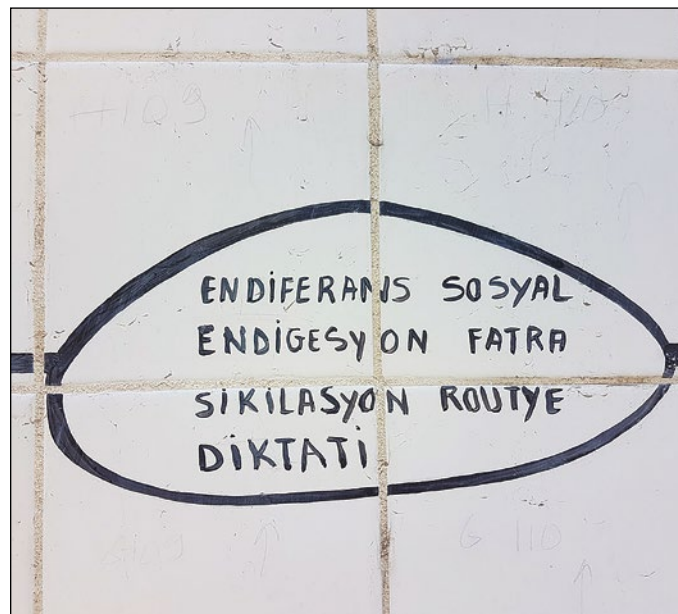 ENDİFERANS SOSYAL
ENDİGESYON FATRA
SİKİLASYON ROUTYE
DİKTATİ
G 110